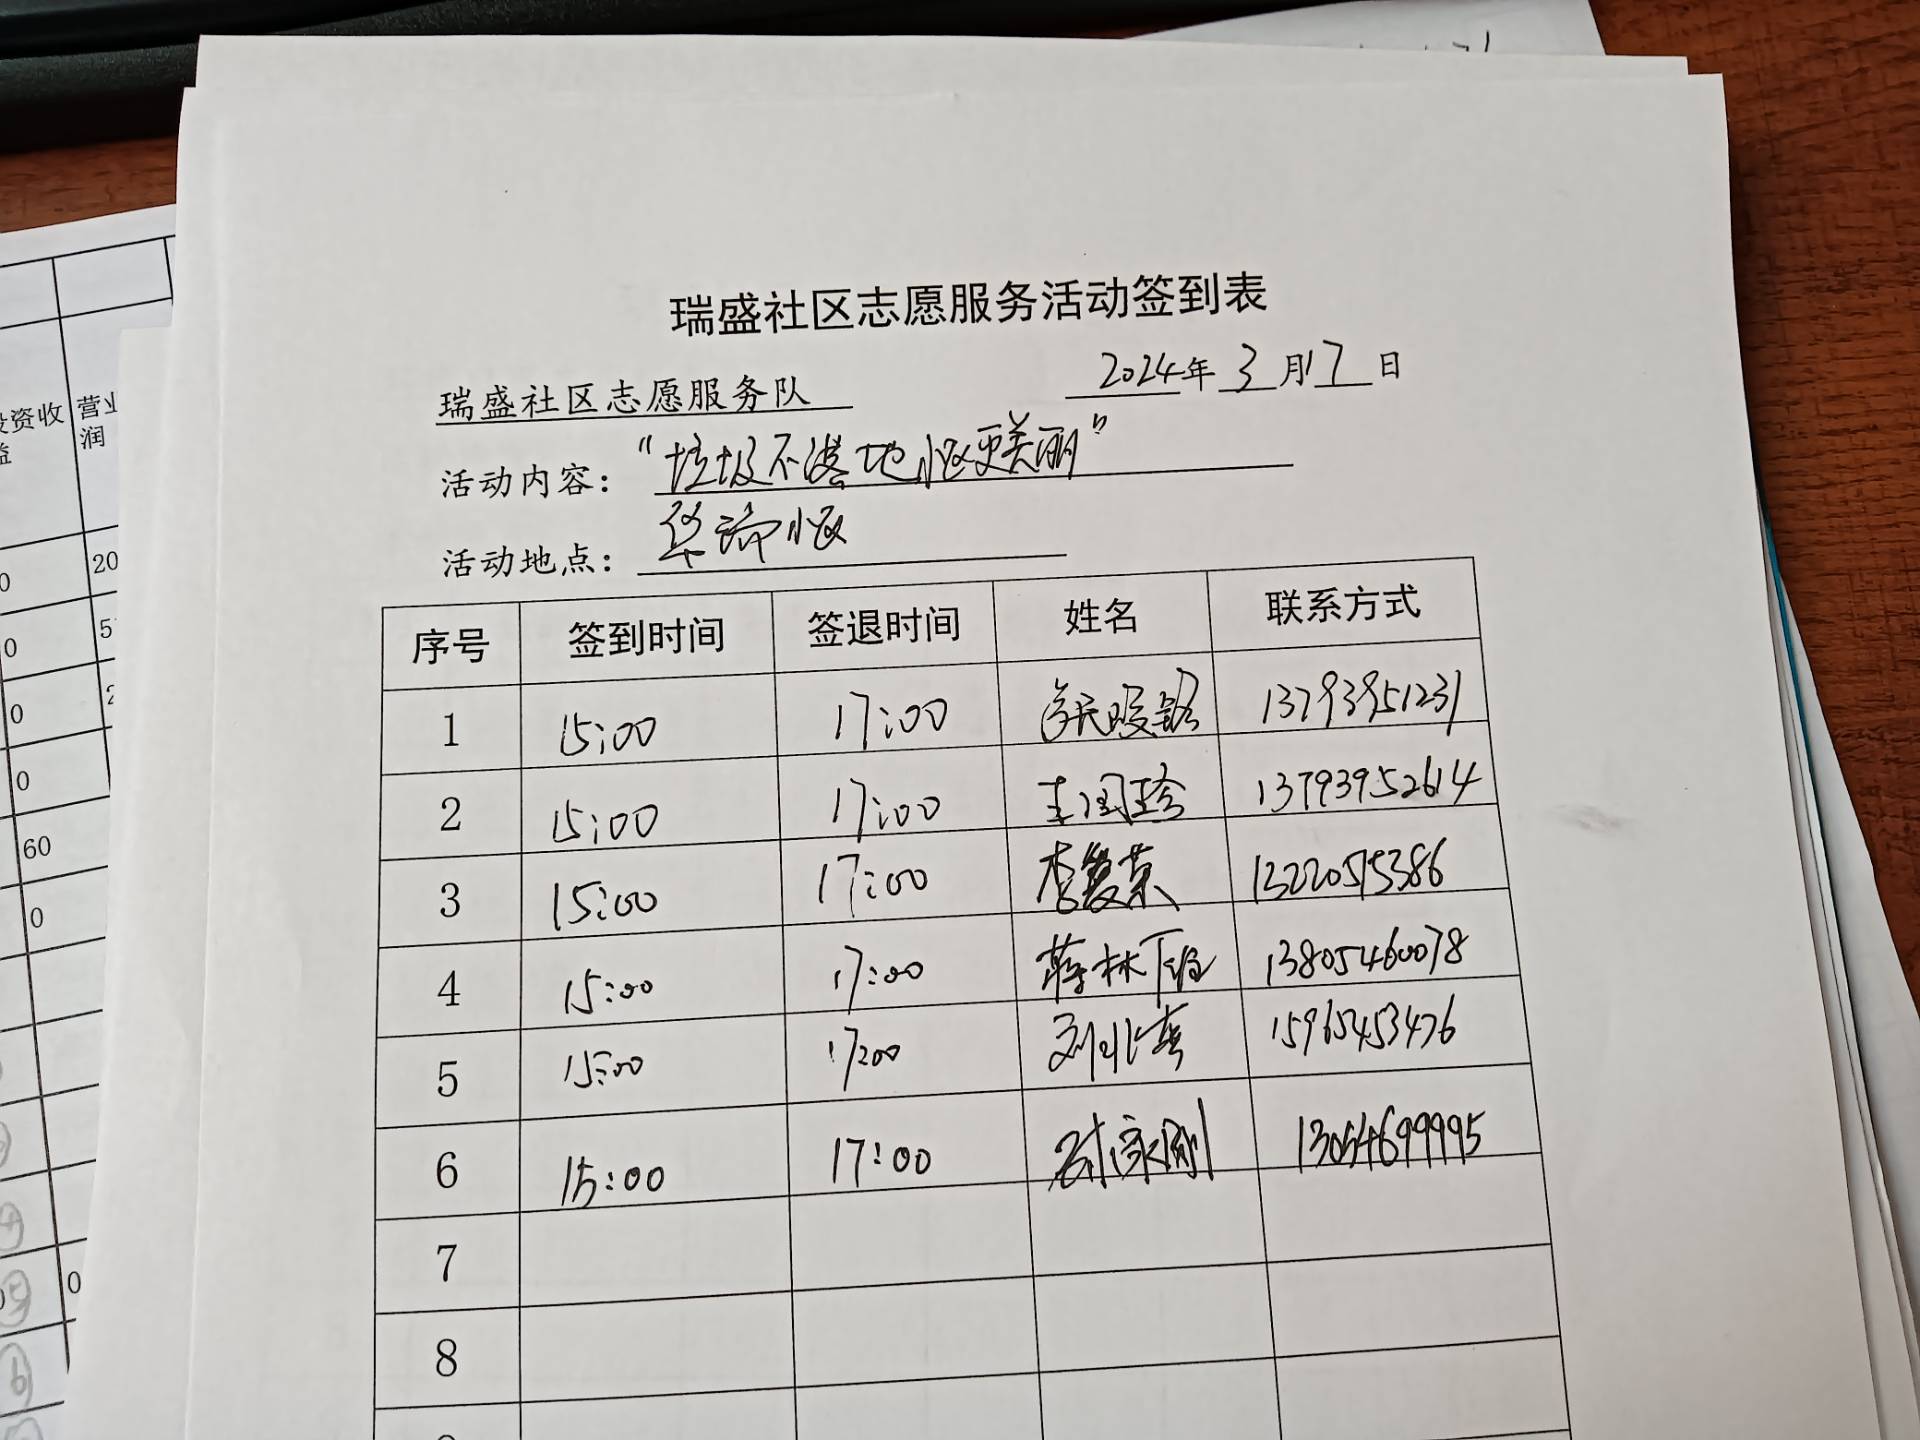 瑞盛社区志愿服务活动签到表
瑞盛社区志愿服务队 2024年3月17日
活动内容：“垃圾不落地 小区更美丽”
活动地点：华瑞小区
序号 签到时间 签退时间 姓名 联系方式
1 15:00 17:00 13793951231
2 15:00 17:00 13793952614
3 15:00 17:00 李爱荣 13220575386
4 15:00 17:00 蒋林 13805460078
5 15:00 17:00 刘 15965453476
6 15:00 17:00 13054699995
7
8
投资收益
营业
润
20
0
5
0
2
0
0
60
0
0